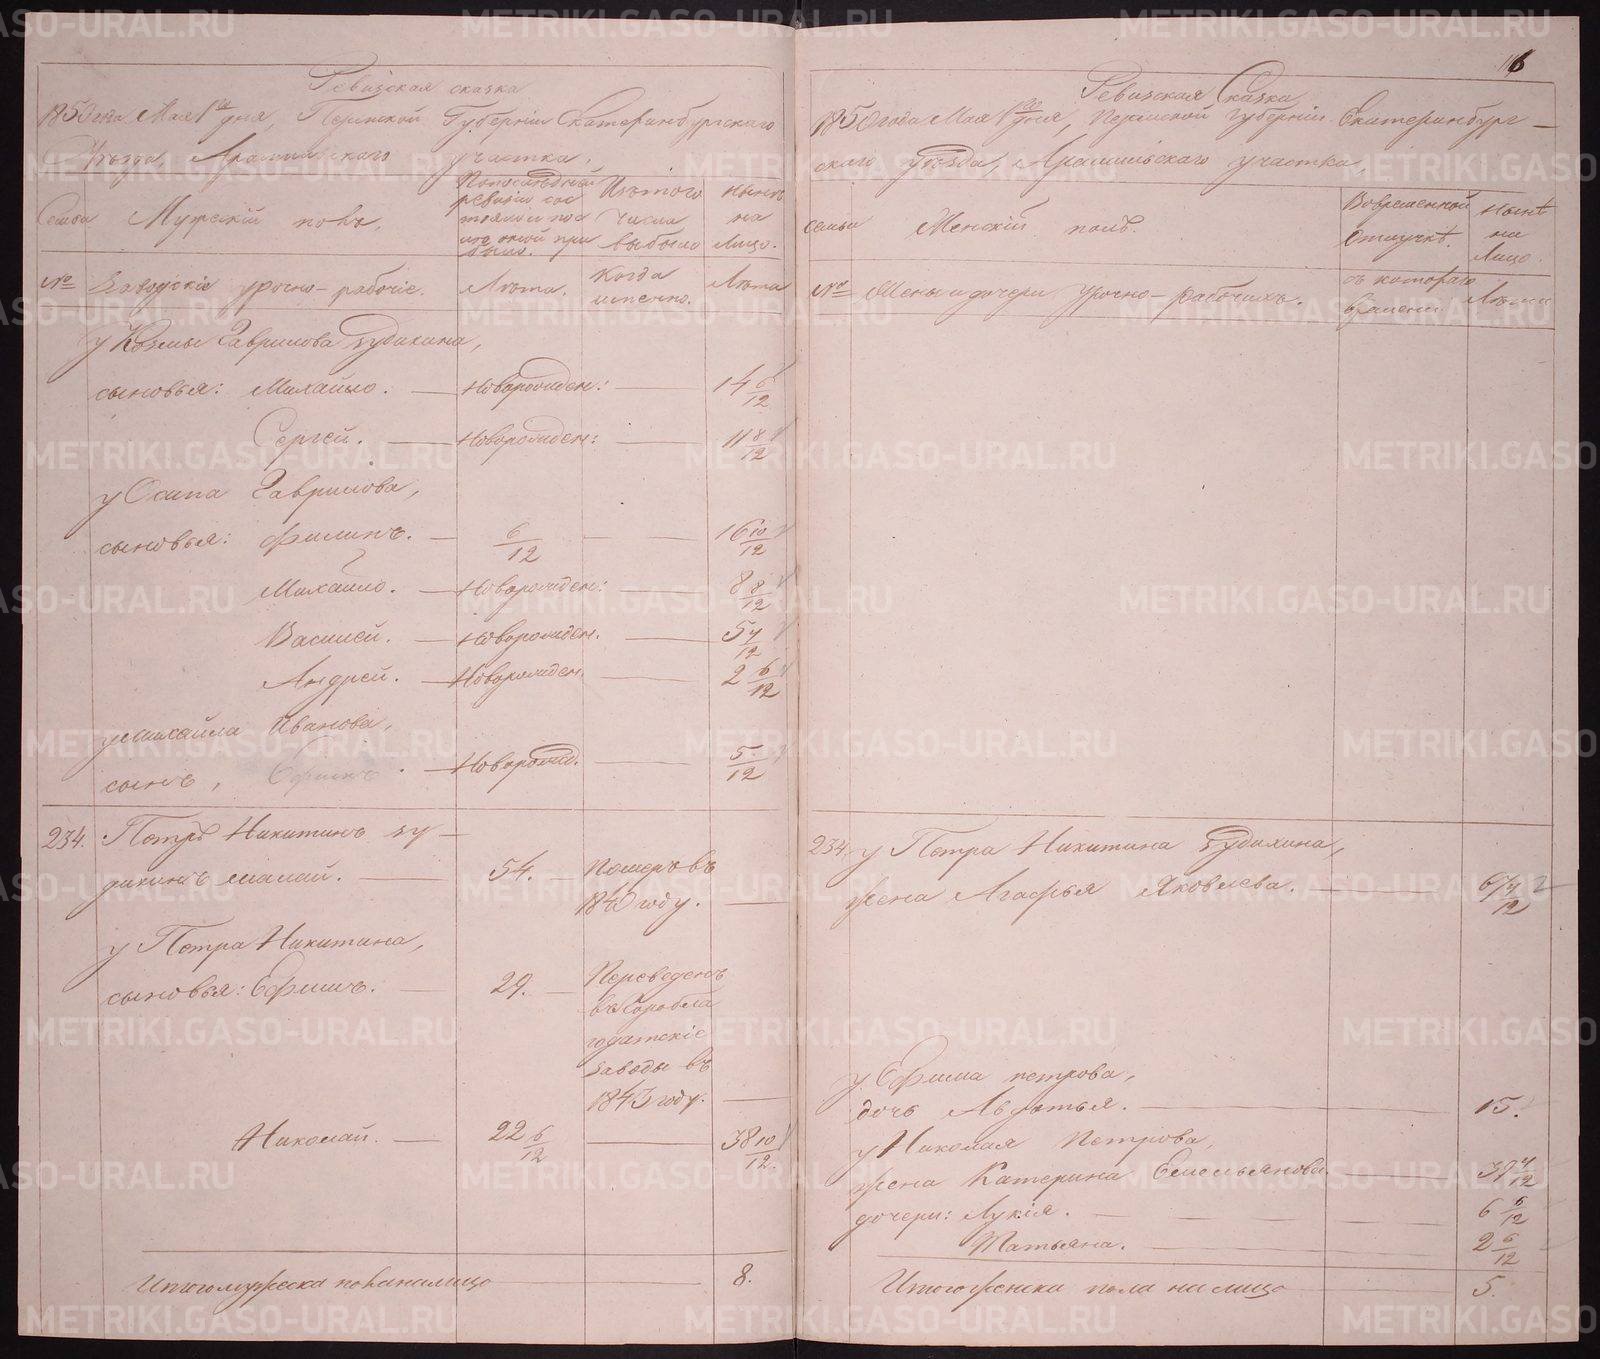 116
Ревизская сказка
1850 года Мая 1го дня, Пермской Губернии Екатеринбургскаго
Уезда, Арамильскаго участка.
Семьи
Мужский полъ.
По последней ревизии состояло и после оной прибыло.
Изъ того числа выбыло
Ныне на лицо.
№
Заводские урочно-рабочие.
Лета.
Когда именно.
Лета
у Козмы Гаврилова Будакина,
сыновья: Михайло. — Новорожден: — 14 6/12
Сергей. — Новорожден: — 11 8/12
у Осипа Гаврилова,
сыновья: Филипъ. — 6/12 — — 16 10/12
Михайло. — Новорожден: — 8 8/12
Василей. — Новорожден. — 5 4/12
Андрей. — Новорожден. — 2 6/12
у Михайла Иванова,
сынъ, Ефимъ. — Новорожд. — 5/12
234. Петръ Никитинъ Бу-
дакинъ малай. — 54. — Померъ въ
1840 году. —
у Петра Никитина,
сыновья: Ефимъ. — 29. — Переведенъ
въ Горобла
годатские
заводы въ
1843 году. —
Николай. — 22 6/12 — 38 10/12.
Итого мужеска пола на лицо — 8.
Ревизская Сказка
1850 года Мая 1го дня, Пермской Губернии Екатеринбург-
скаго уезда, Арамильскаго участка,
семьи
Женский полъ.
Во временной отлучке.
Ныне на Лицо.
№
Жены и дочери Урочно-Рабочихъ.
съ котораго времени
Лета
234. у Петра Никитина Будакина,
жена Агафья Яковлева. — 67 4/12
у Ефима петрова,
дочь Авдотья. — 15.
у Николая Петрова,
жена Катерина Емельянова — 38 4/12
дочери: Лукия. — 6 6/12
Татьяна. — 2 6/12
Итого женска пола на лицо 5.
METRIKI.GASO-URAL.RU